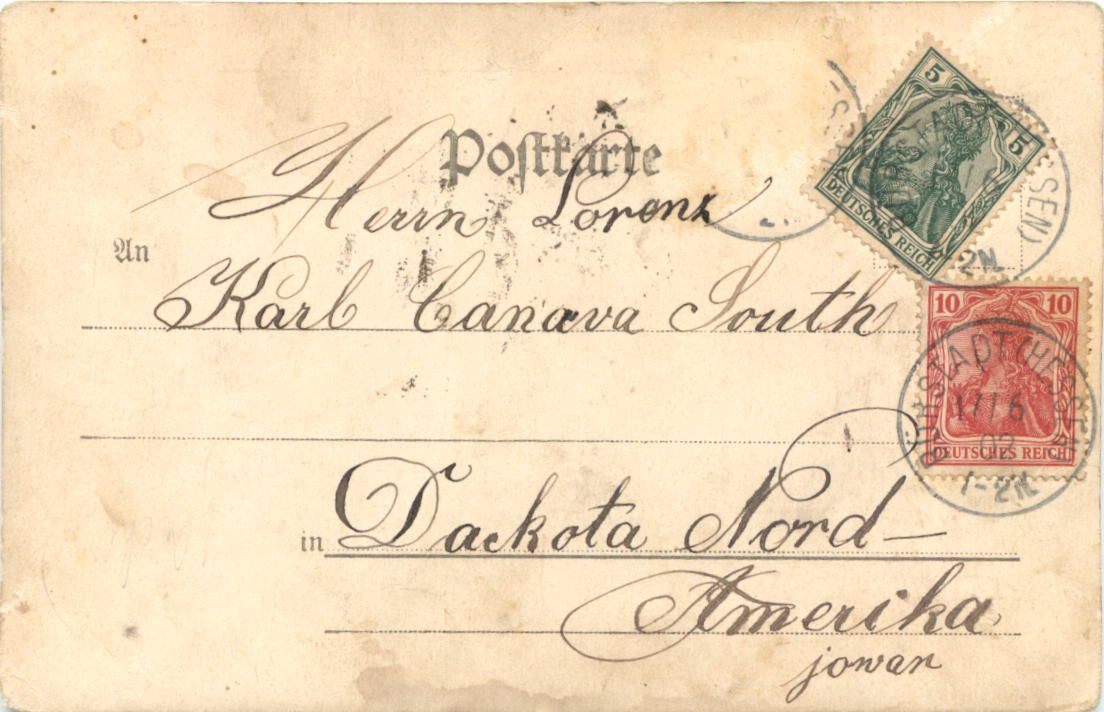 Postkarte
Herrn Lorenz
An
Karl Canava South
in Dackota Nord-
Amerika
jowar
5
5
DEUTSCHES REICH
SEN)
2N
10 10
DEUTSCHES REICH
STADT (HESSEN
17/6
02
1-2N